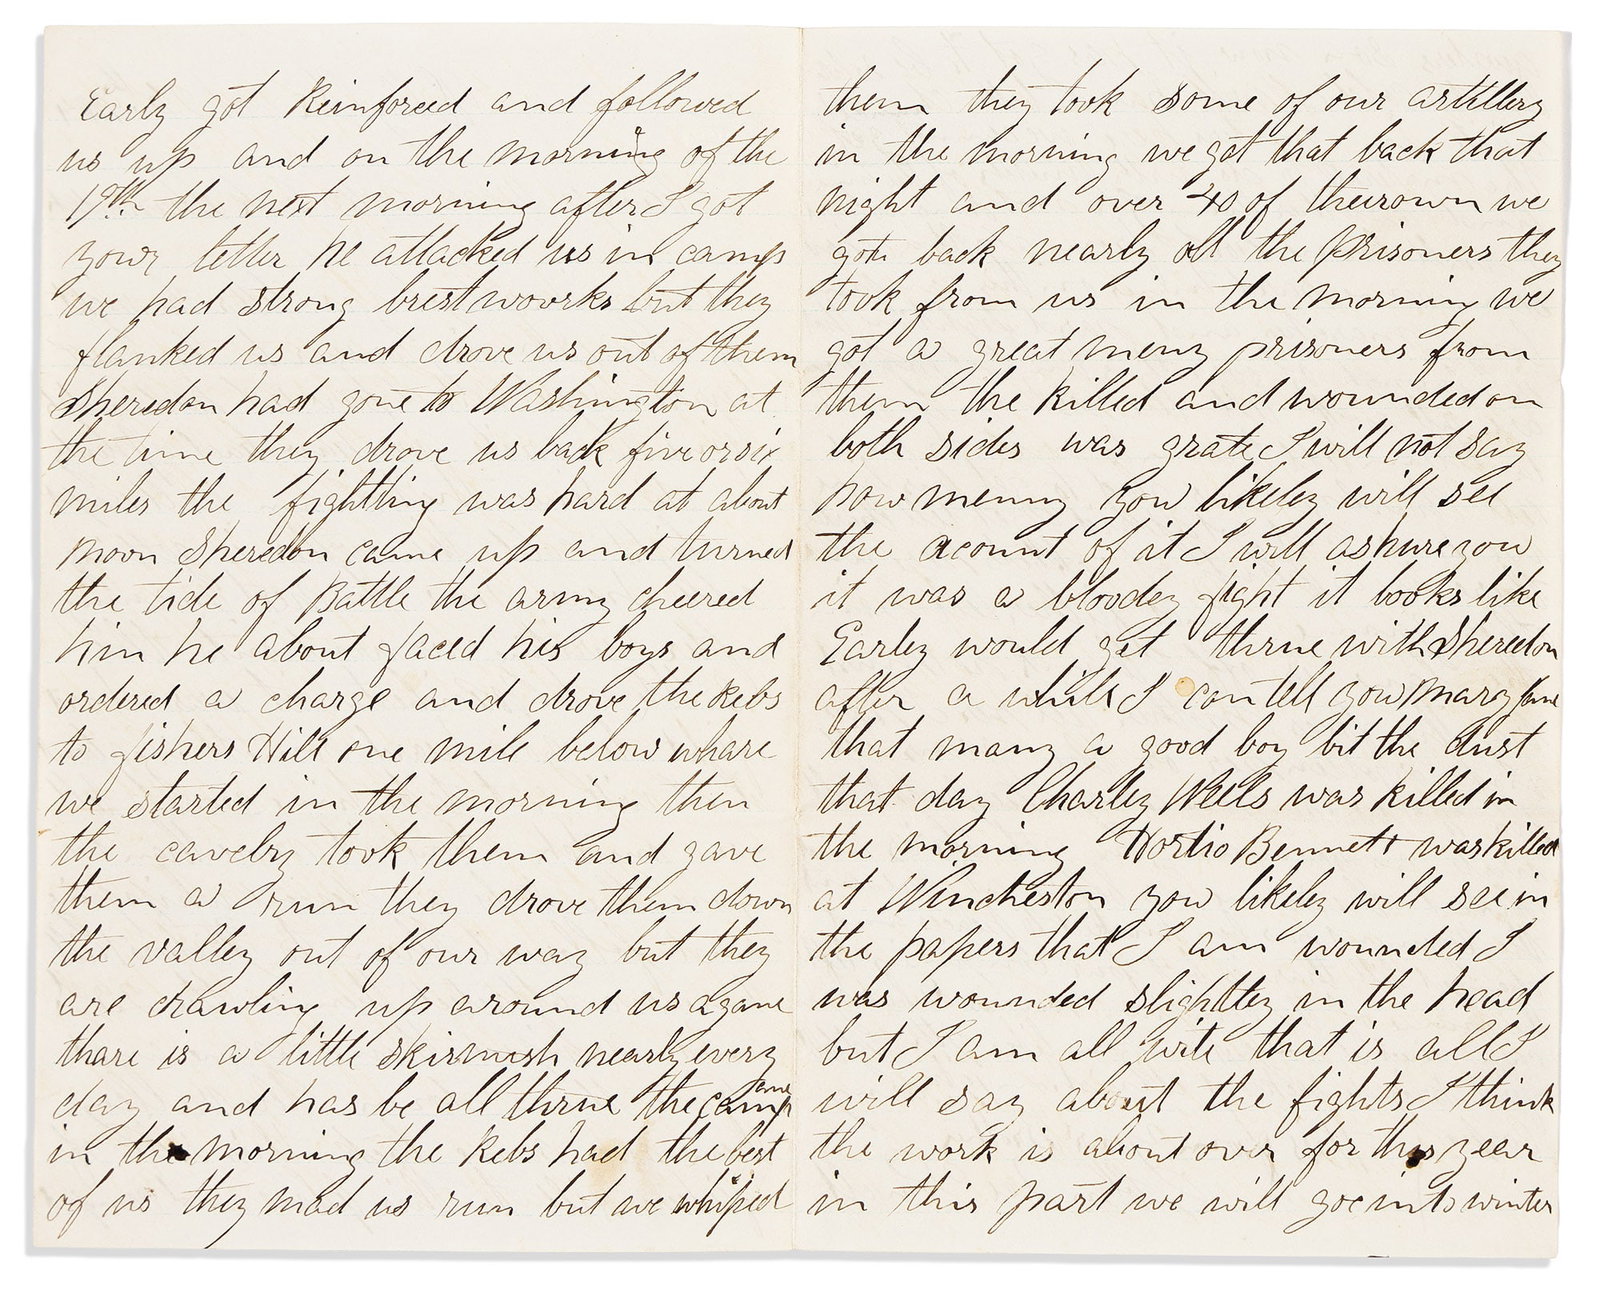 Early got Reinforced and followed
us up and on the morning of the
19th the next morning after I got
your letter he attacked us in camp
we had strong brestwoorks but they
flanked us and drove us out of them
Sheredon had gone to Washington at
the time they drove us back five or six
miles the fightting was hard at about
noon Sheredon came up and turned
the tide of Battle the army cheered
him he about faced his boys and
ordered a charge and drove the Rebs
to fishers Hill one mile below whare
we started in the morning then
the cavelry took them and gave
them a run they drove them down
the valley out of our way but they
are drawling up around us agane
thare is a little skirmish nearly every
day and has be all thrue the camp
in the morning the Rebs had the best
of us they mad us run but we whiped
them they took some of our artillery
in the morning we got that back that
night and over 40 of theirown we
got back nearly all the Prisoners they
took from us in the morning we
got a great meny prisoners from
them the killed and wounded on
both sides was grate I will not say
how menny you likeley will see
the acount of it I will ashure you
it was a bloodey fight it looks like
Earley would get thrue with Sheredon
after a while I can tell you Mary Jane
that many a good boy bit the dust
that day Charley Wells was killed in
the morning Hortio Bennett was killed
at Wincheston you likeley will see in
the papers that I am wounded I
was wounded slightley in the head
but I am all wite that is all I
will say about the fights I think
the work is about over for this year
in this part we will goe into winter